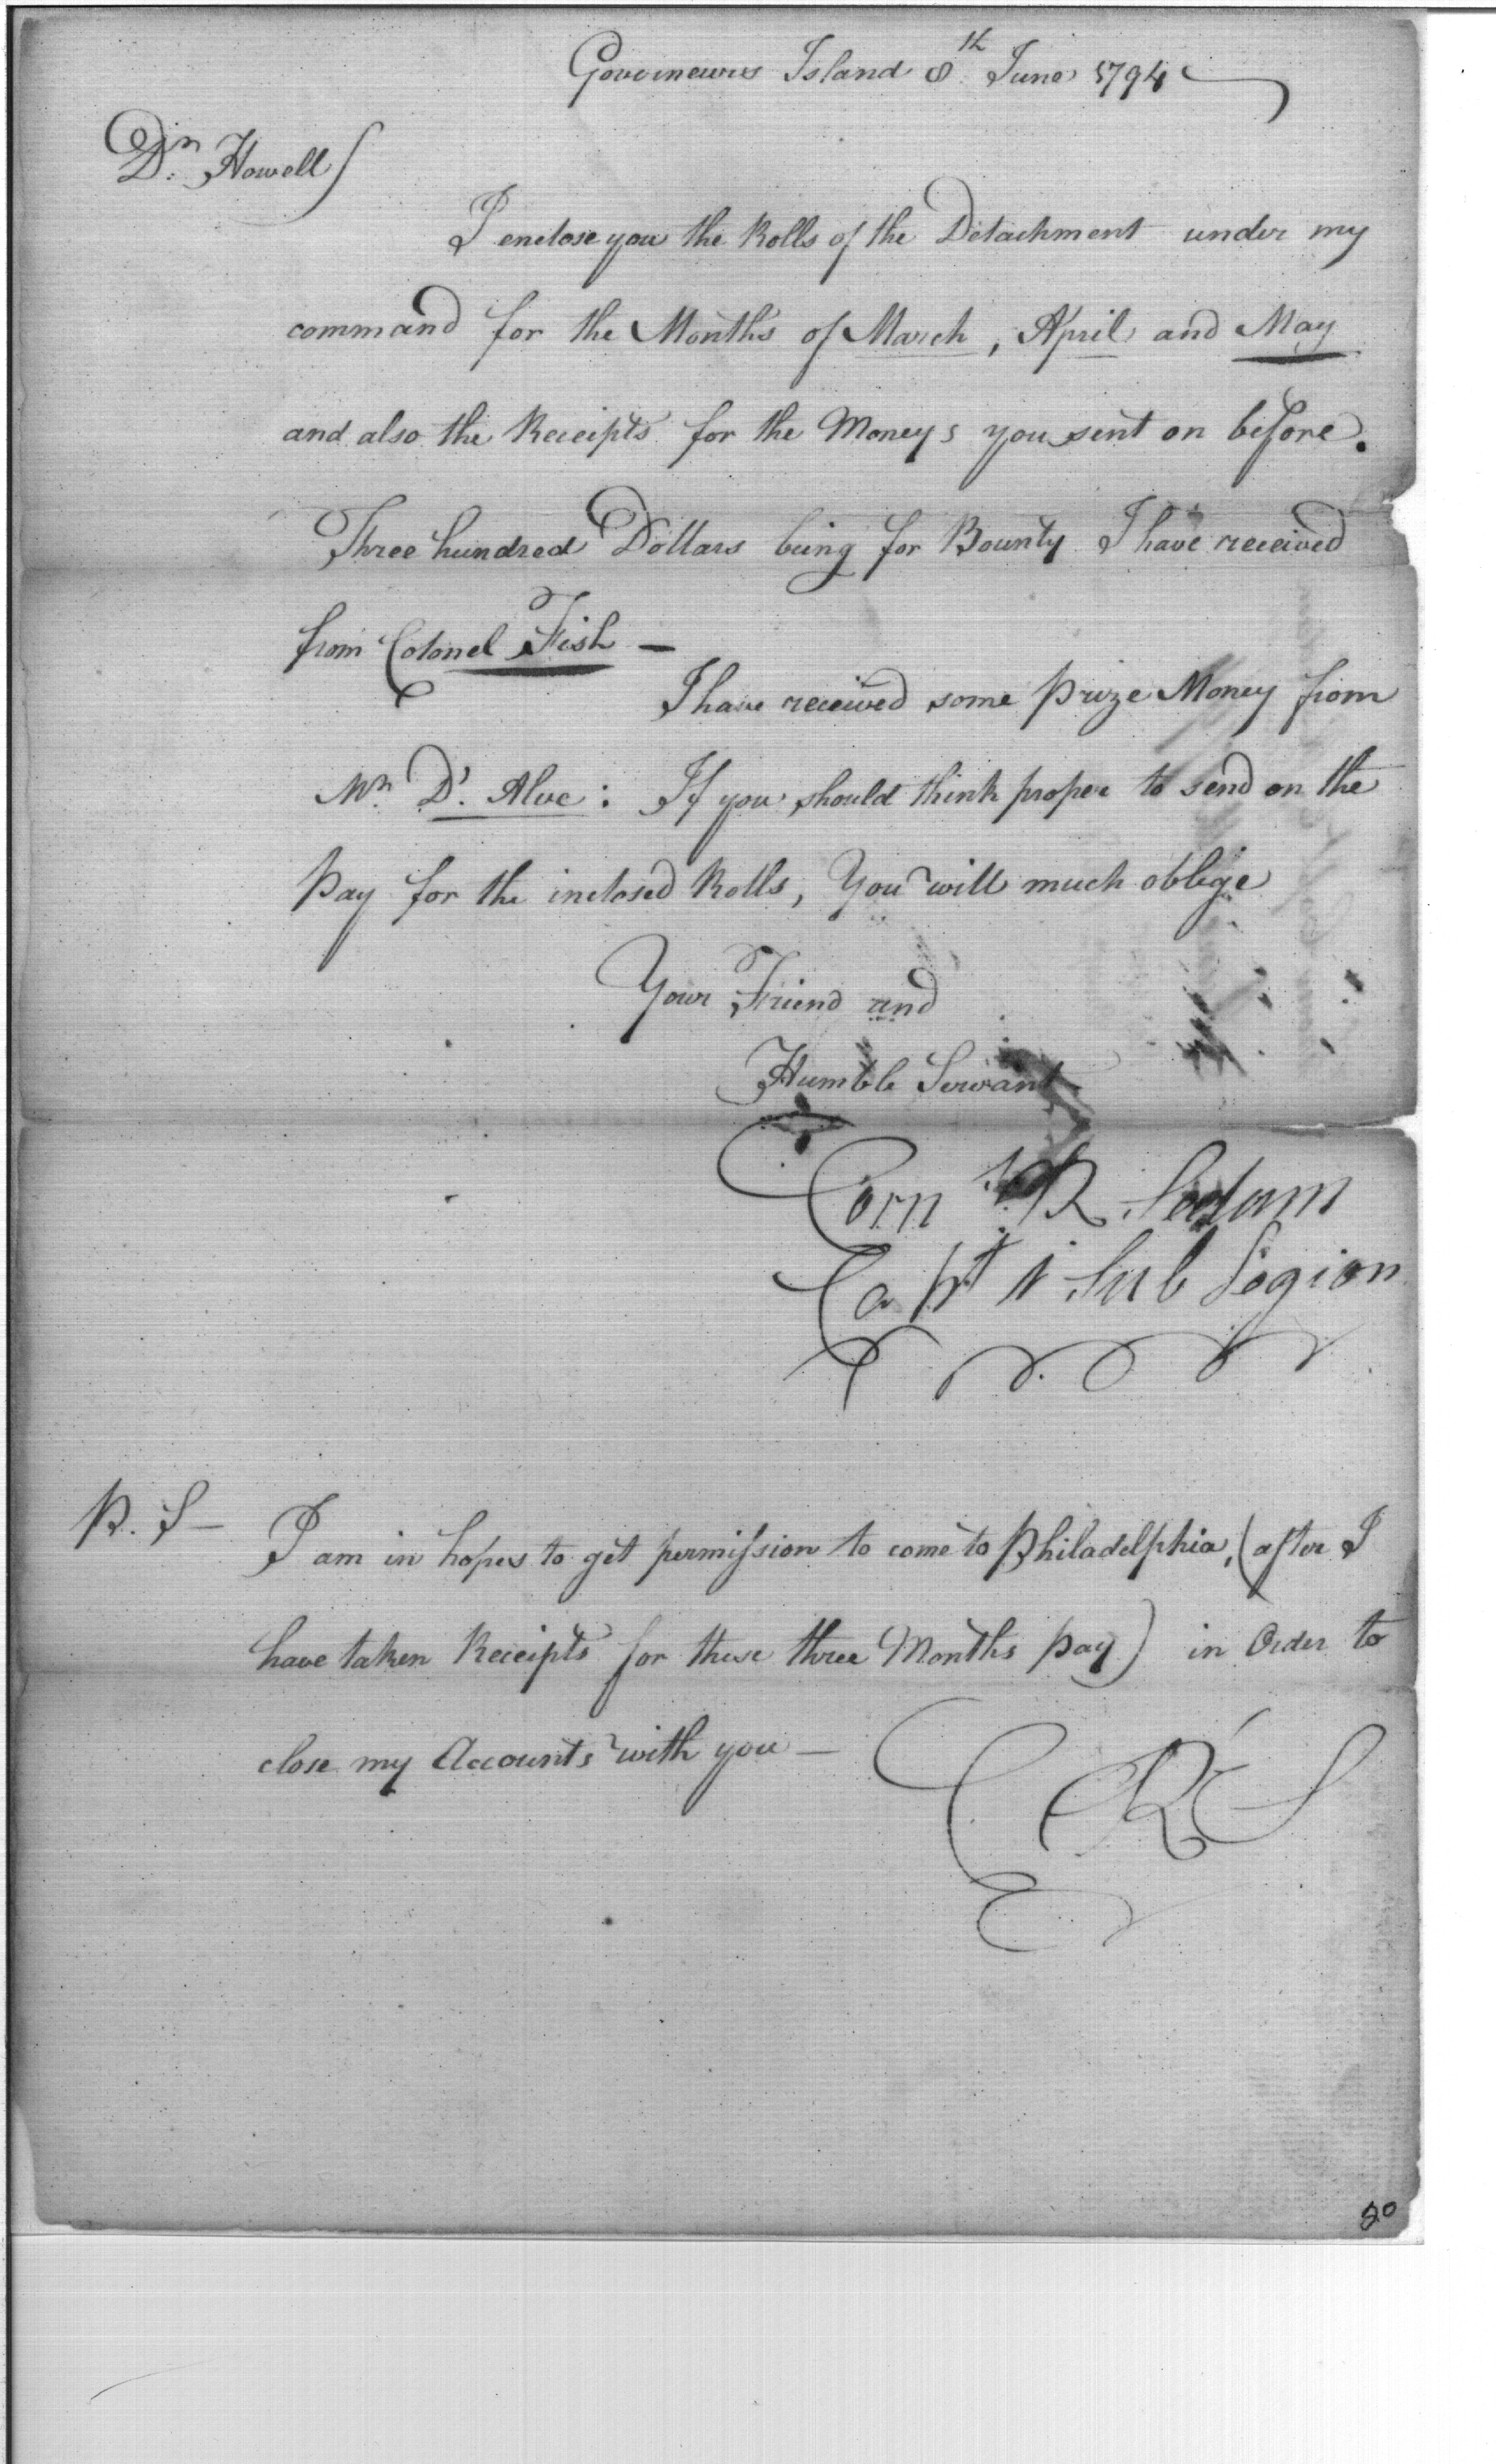 Governeurs Island 8th June 1794
Dr. Howell
I enclose you the Rolls of the Detachment under my
command for the Months of March, April and May
and also the Receipts for the Moneys you sent on before.
Three hundred Dollars being for Bounty I have received
from Colonel Fish —
I have received some prize Money from
Mr. D'. Alve: If you should think proper to send on the
Pay for the inclosed Rolls, You will much oblige
Your Friend and
Humble Servant
Corn R Sedam
Capt 1 Sub Legion
P. S— I am in hopes to get permission to come to Philadelphia, (after I
have taken Receipts for these three Months pay) in Order to
close my Accounts with you —
C R S
20